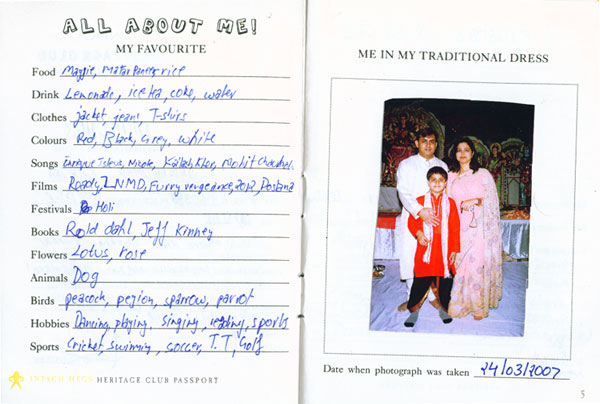 ALL ABOUT ME!
MY FAVOURITE
Food Maggie, Matar Paneer, rice
Drink Lemonade, ice tea, coke, water
Clothes jacket, jeans, T-shirs
Colours Red, Black, Grey, white
Songs Enrique Iglesias, Nicole, Kailash Kher, Mohit Chauhan
Films Ready, ZNMD, Furry vengeance, 2012, Dostana
Festivals Holi
Books Roald dahl, Jeff Kinney
Flowers Lotus, rose
Animals Dog
Birds peacock, pegion, sparrow, parrot
Hobbies Dancing, playing, singing, reading, sports
Sports Cricket, swimming, soccer, T.T, Golf
INTACH HECS HERITAGE CLUB PASSPORT
ME IN MY TRADITIONAL DRESS
Date when photograph was taken 24/03/2007
5